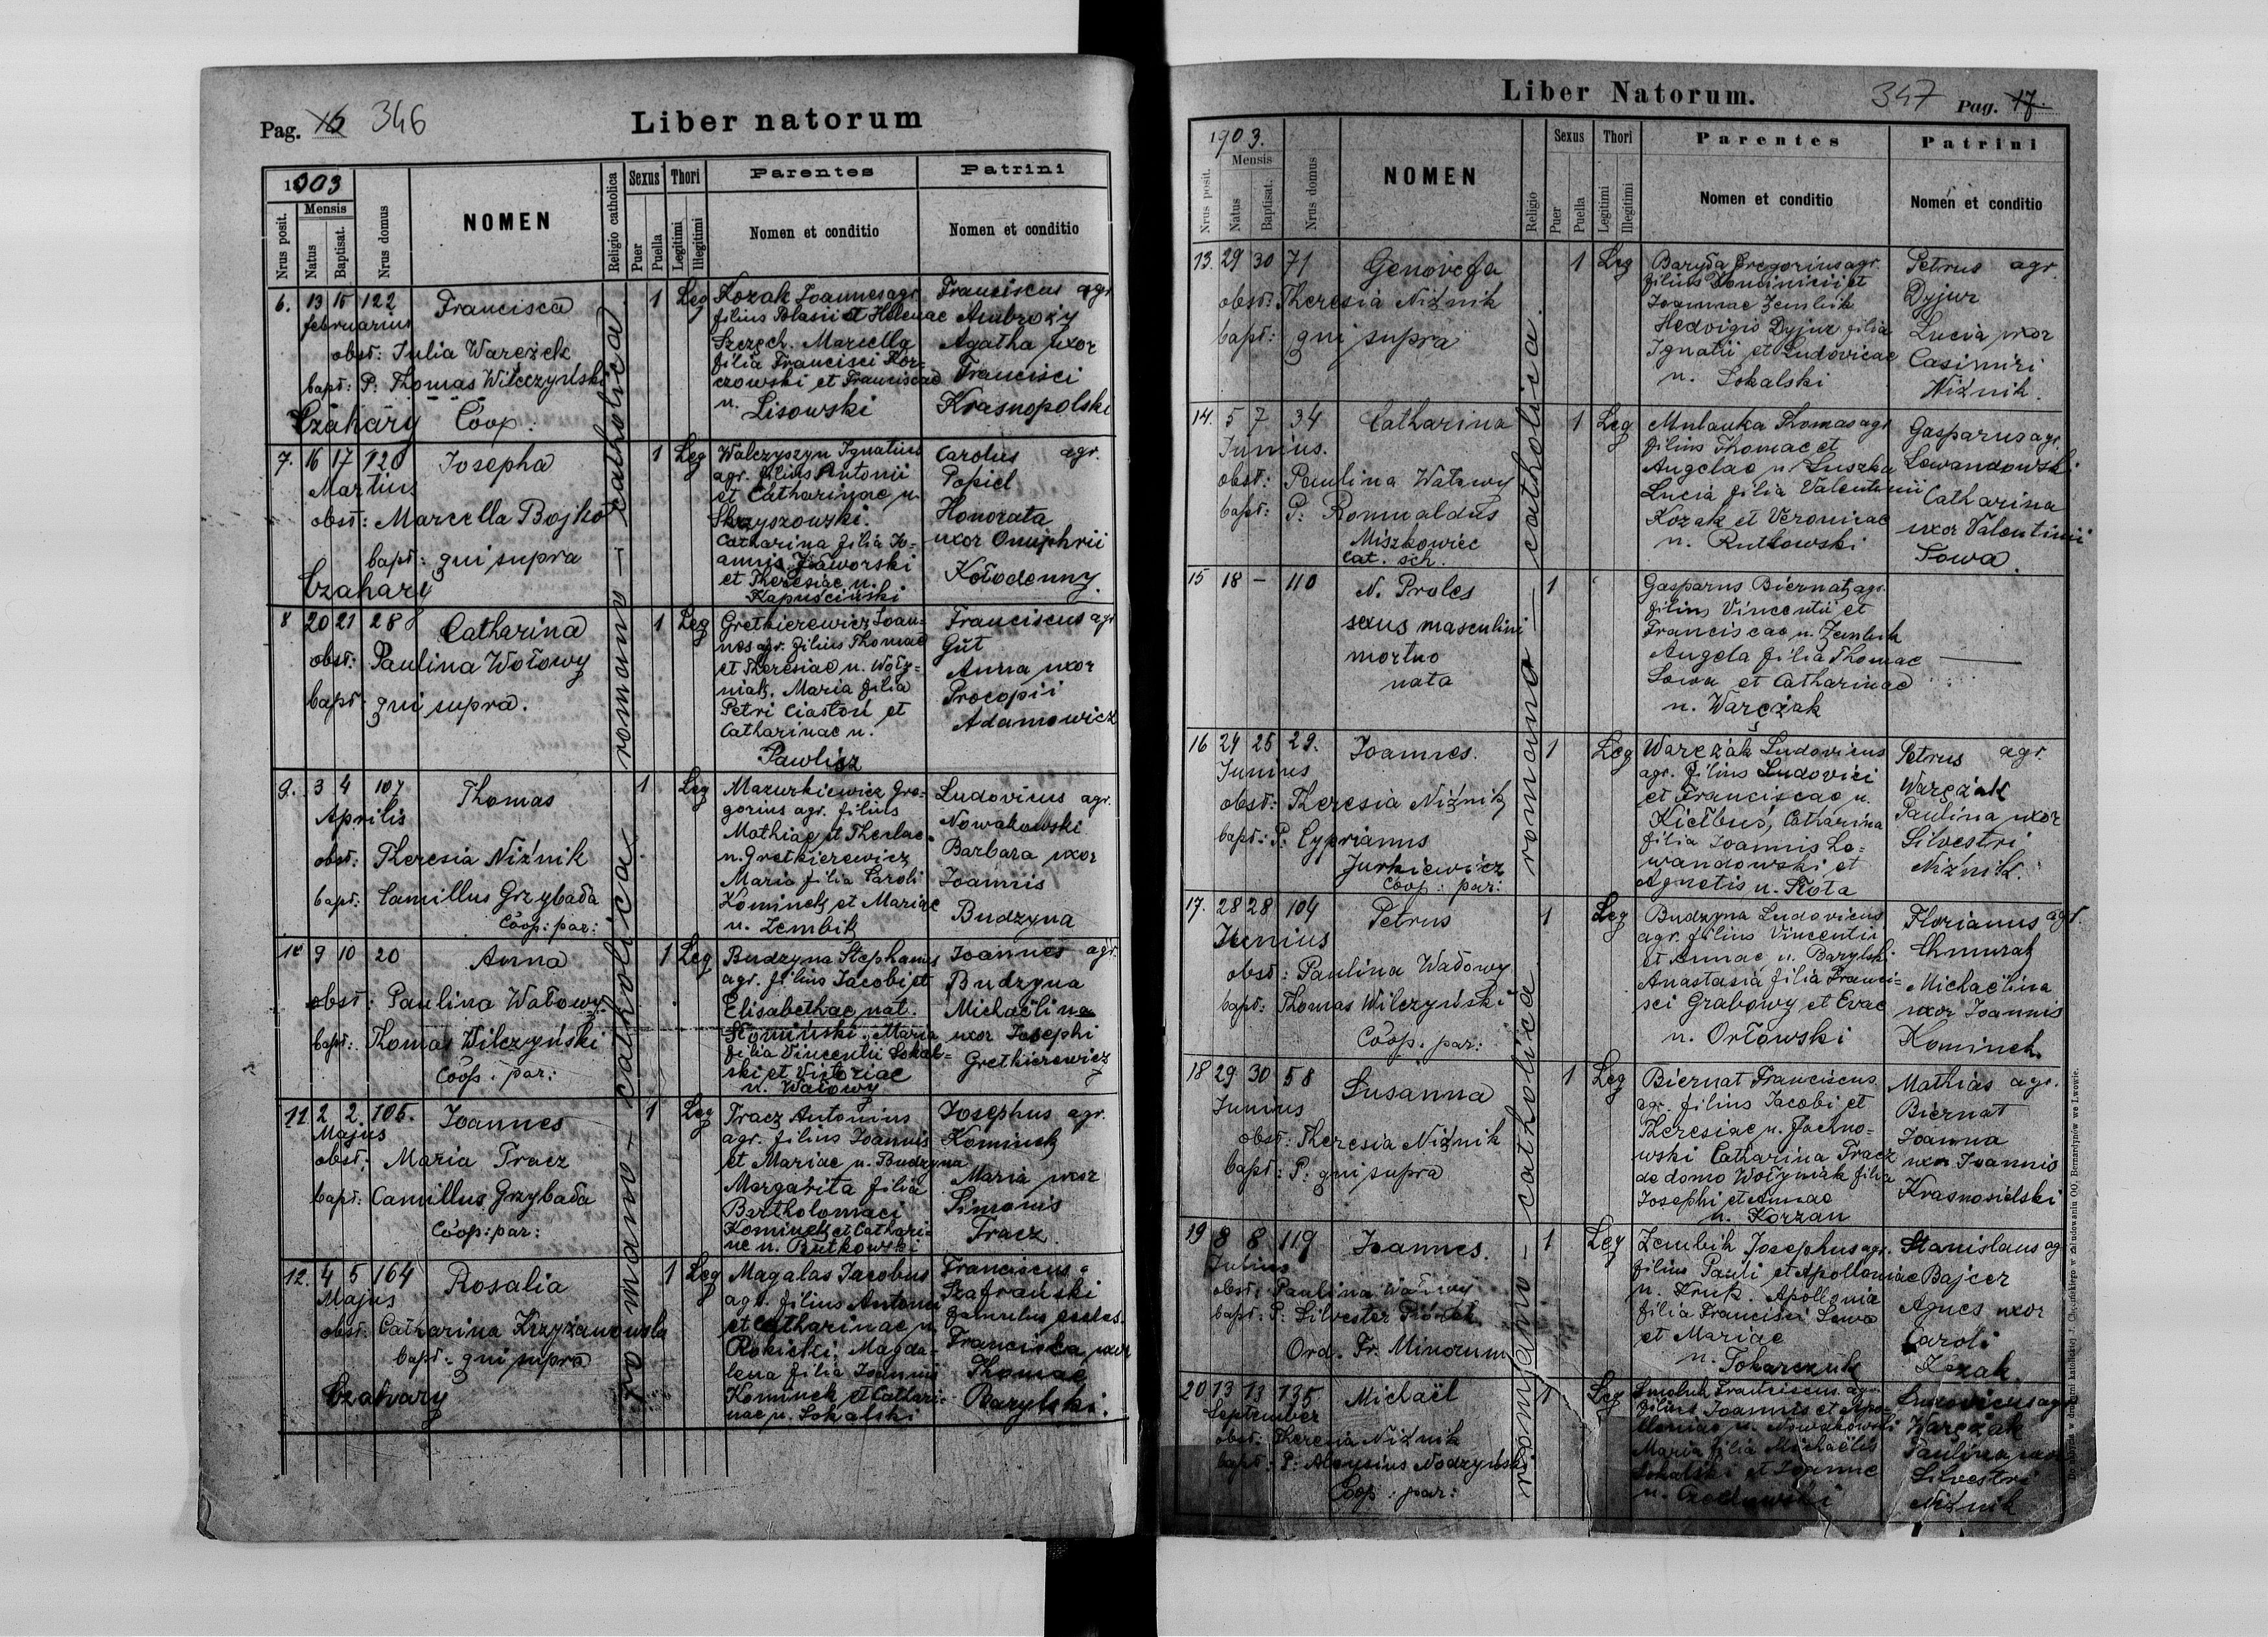 Pag. 16 346
Liber natorum
1903
Nrus posit.
Mensis
Natus
Baptisat.
Nrus domus
NOMEN
Religio catholica
Sexus
Puer
Puella
Thori
Legitimi
Illegitimi
Parentes
Nomen et conditio
Patrini
Nomen et conditio
romano - catholica
romano - catholica
6. 13 15 122 Francisca 1 Leg
februarius
obst: Julia Wareżek
bapt: P. Thomas Wilczyński
Czahary Coop.
Kozak Joannes agr.
filius Blasii et Helenae
Szczęch. Marcella
filia Francisci Kor-
czowski et Franciscae
n. Lisowski
Franciscus agr
Ambroży
Agatha uxor
Francisci
Krasnopolski
7. 16 17 120 Josepha 1 Leg
Martius
obst: Marcella Bojko
bapt: qui supra
Czahary
Walczyszyn Ignatius
agr. filius Antonii
et Catharinae n.
Skrzyszowski.
Catharina filia Jo-
annis Jaworski
et Theresiae n.
Kapuściński
Carolus agr.
Popiel
Honorata
uxor Onuphrii
Kołodenny.
8 20 21 28 Catharina 1 Leg
obst: Paulina Wołowy
bapt. qui supra.
Gretkierewicz Joan-
nes agr. filius Thomae
et Theresiae n. Woły-
niak. Maria filia
Petri Ciastoń et
Catharinae n.
Pawlisz
Franciscus agr
Gut
Anna uxor
Procopii
Adamowicz
9. 3 4 107 Thomas 1 Leg
Aprilis
obst: Theresia Niźnik
bapt. Camillus Grzybała
Coop: par:
Mazurkiewicz Gre-
gorius agr. filius
Mathiae et Theclae
n. Gretkierewicz
Maria filia Caroli
Kominek et Mariae
n. Zembik
Ludovicus agr.
Nowakowski
Barbara uxor
Joannis
Budzyna
10 9 10 20 Anna 1 Leg
obst: Paulina Wałowy
bapt: Thomas Wilczyński
Coop: par:
Budzyna Stephanus
agr. filius Jacobi et
Elisabethae nat.
Słomiński. Maria
filia Vincentii Sokal-
ski et Victoriae
n. Wałowy
Joannes agr.
Budzyna
Michaelina
uxor Josephi
Gretkierewicz
11. 2 2 105. Joannes 1 Leg
Majus
obst: Maria Tracz
bapt: Camillus Grzybała
Coop: par:
Tracz Antonius
agr. filius Joannis
et Mariae n. Budzyna
Margarita filia
Bartholomaei
Kominek et Cathari-
ne n. Butkowski
Josephus agr.
Kominek
Maria uxor
Simonis
Tracz
12. 4 5 164 Rosalia 1 Leg
Majus
obst. Catharina Krzyżanowska
bapt: qui supra
Czahary
Magalas Jacobus
agr. filius Antonii
et Catharinae n.
Rokicki. Magda-
lena filia Joannis
Kominek et Cathari-
nae n. Sokalski
Franciscus
Szafrański
famulus eccles.
Francisca uxor
Thomae
Barylski.
Liber Natorum.
347 Pag. 17.
1903.
Nrus posit.
Mensis
Natus
Baptisat.
Nrus domus
NOMEN
Religio
Sexus
Puer
Puella
Thori
Legitimi
Illegitimi
Parentes
Nomen et conditio
Patrini
Nomen et conditio
romano - catholica
romano - catholica
13. 29 30 71 Genovefa 1 Leg
obst: Theresia Niźnik
bapt: qui supra
Baryła Gregorius agr.
filius Dominicii et
Joannae Zembik
Hedvigis Dyjur filia
Ignatii et Ludovicae
n. Sokalski
Petrus agr.
Dyjur
Lucia uxor
Casimiri
Niźnik.
14. 5 7 34 Catharina 1 Leg
Junius.
obst: Paulina Wałowy
bapt: P. Romualdus
Miszkowiec
Cat. sch.
Mulawka Thomas agr
filius Thomae et
Angelae n. Luszka
Lucia filia Valentinii
Kozak et Veronicae
n. Rutkowski
Gasparus agr.
Lewandowski
Catharina
uxor Valentinii
Sowa.
15 18 - 110 N. Proles 1
sexus masculini
mortuo
nata
Gasparus Biernat agr.
filius Vincentii et
Franciscae n. Zembik
Angela filia Thomae
Sowa et Catharinae
n. Wareżak
16 24 25 29. Joannes. 1 Leg
Junius
obst: Theresia Niźnik
bapt: P. Cyprianus
Jurkiewicz
Coop: par:
Wareżak Ludovicus
agr. filius Ludovici
et Franciscae n.
Kiełbus, Catharina
filia Joannis Le-
wandowski et
Agnetis n. Słota
Petrus agr.
Wareżak
Paulina uxor
Silvestri
Niźnik.
17. 28 28 104 Petrus 1 Leg
Junius
obst: Paulina Wałowy
bapt: Thomas Wilczyński
Coop. par:
Budzyna Ludovicus
agr. filius Vincentii
et Annae n. Barylski
Anastasia filia Franci-
sci Grabowy et Evae
n. Orłowski
Florianus agr.
Chmurak
Michaelina
uxor Joannis
Kominek
18 29 30 58 Susanna 1 Leg
Junius
obst: Theresia Niźnik
bapt: P: qui supra
Biernat Franciscus
agr. filius Jacobi et
Theresiae n. Jachno-
wski Catharina Tracz
de domo Wołyniak filia
Josephi et Annae
n. Korzan
Mathias agr.
Biernat
Joanna
uxor Joannis
Krasnosielski
19 8 8 119 Joannes. 1 Leg
Julius
obst: Paulina Wałowy
bapt: P. Silvester
Ord. Fr. Minorum
Zembik Josephus agr.
filius Pauli et Apolloniae
n. Krup. Apollonia
filia Francisci Sowa
et Mariae
n. Tokarczuk
Stanislaus ag
Bajcer
Agnes uxor
Caroli
Kozak
20 13 13 135 Michaël 1 Leg
September
obst: Theresia Niźnik
bapt: P: Aloysius Nodzyński
Coop: par:
Smoluk Franciscus agr.
filius Joannis et Apo-
lloniae n. Nowakowski
Maria filia Michaelis
Sokalski et Joannae
n.
Ludovicus agr
Wareżak
Paulina uxor
Silvestri
Niźnik